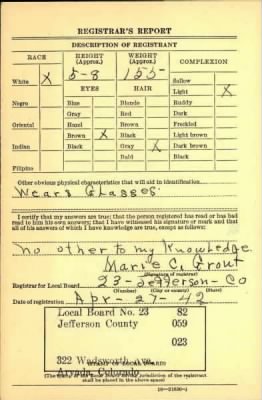 REGISTRAR'S REPORT
DESCRIPTION OF REGISTRANT
RACE HEIGHT (Approx.) WEIGHT (Approx.) COMPLEXION
White X 5-8 155 Sallow
EYES HAIR Light X
Negro Blue Blonde Ruddy
Gray Red Dark
Oriental Hazel Brown Freckled
Brown X Black Light brown
Indian Black Gray X Dark brown
Bald Black
Filipino
Other obvious physical characteristics that will aid in identification
Wears Glasses
I certify that my answers are true; that the person registered has read or has had
read to him his own answers; that I have witnessed his signature or mark and that
all of his answers of which I have knowledge are true, except as follows:
no other to my knowledge
Marie C. Grout
(Signature of registrar)
Registrar for Local Board 23-Jefferson-Co
(Number) (City or county) (State)
Date of registration Apr-27-42
Local Board No. 23 82
Jefferson County 059
023
322 Wadsworth Ave.
(STAMP OF LOCAL BOARD)
Arvada, Colorado
(The stamp of the Local Board having jurisdiction of the registrant
shall be placed in the above space)